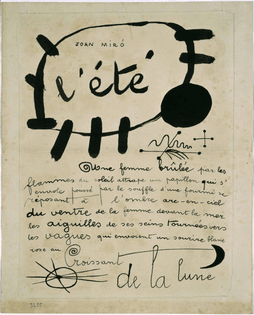 JOAN MIRÓ
l'été
une femme brûlée par les
flammes du soleil attrape un papillon qui s'
envole poussé par le souffle d'une fourmi se
reposant à l'ombre arc-en-ciel
du ventre de la femme devant la mer
les aiguilles de ses seins tournées vers
les vagues qui envoient un sourire blanc
rose au Croissant
de la lune